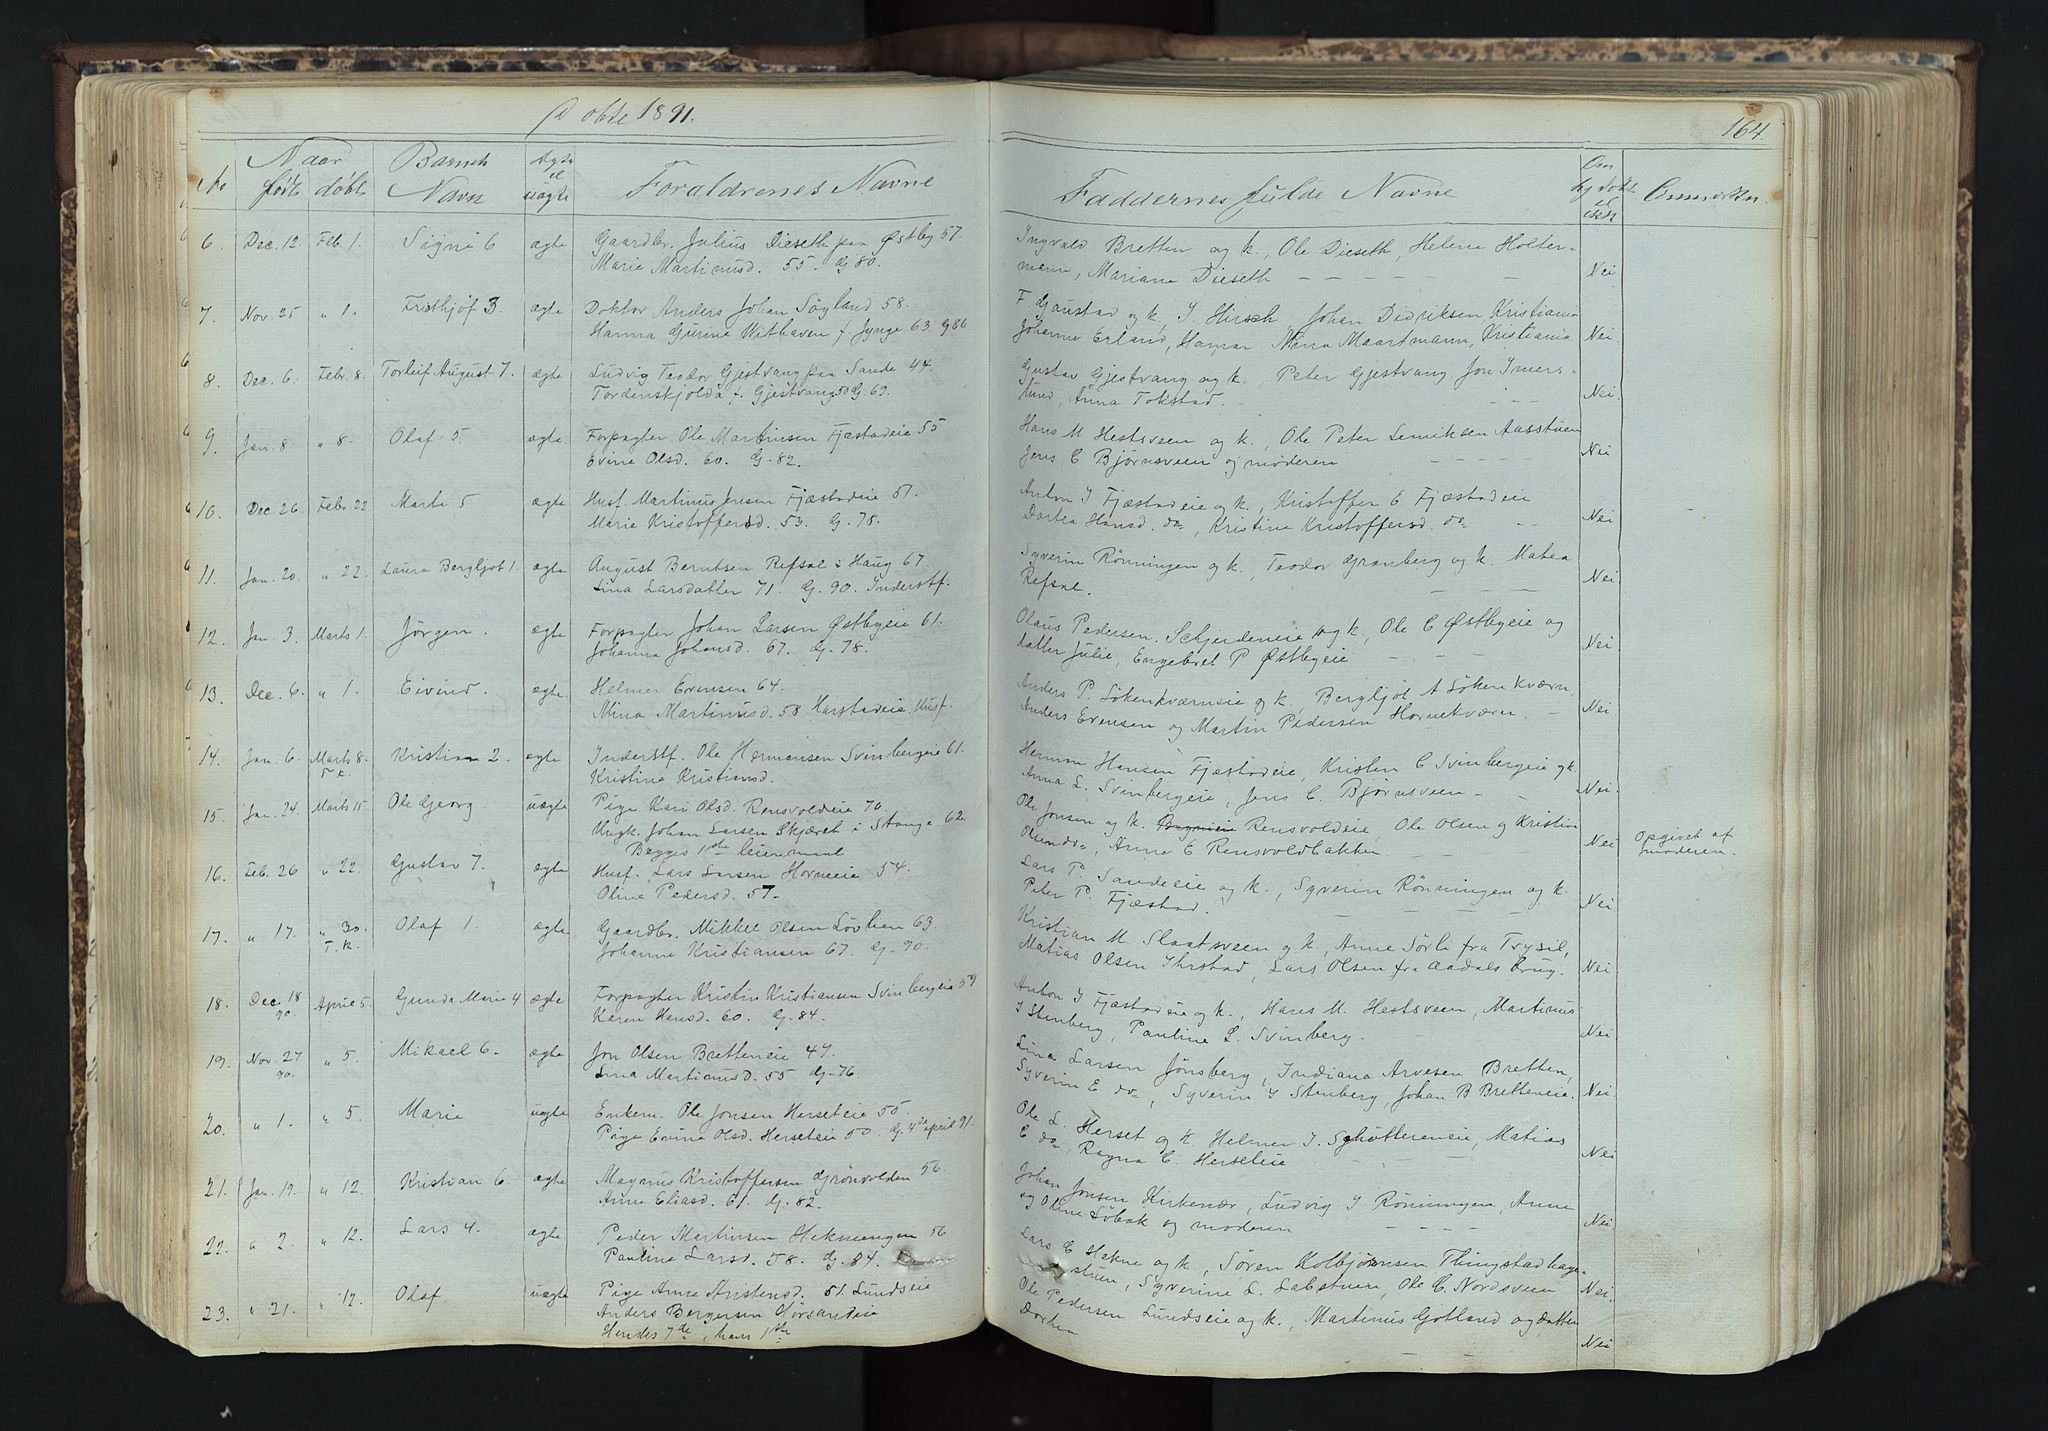 Døbte 1891.
No
Naar
født
døbt
Barnets
Navn
Ægte
el
uægte
Forældrenes Navne
6. Dec. 12. Feb. 1. Signe 6 ægte Gaardbr. Julius Dieseth paa Østby 57.
Marie Martinusd. 55. G. 80.
7. Nov. 25 " 1. Frithjof 3. ægte Doktor Anders Johan Sögland 58.
Hanna Gurine Withaven f. Jynge 63. G 86
8. Dec. 6. Febr. 8. Torleif August 7. ægte Ludvig Teodor Gjestvang paa Sande 44.
Tordenskjolda f. Gjestvang 50 G. 69.
9. Jan. 8 " 8. Olaf 5. ægte Forpagter Ole Martinsen Fjæstadeie 55
Evine Olsd. 60. G. 82.
10. Dec. 26 Febr. 22 Marte 5 ægte Husf. Martinus Jensen Fjæstadeie 51.
Marie Kristoffersd. 53. G. 78.
11. Jan. 20. " 22. Laura Bergljot 1. ægte August Berntsen Refsal i Haug 67.
Lina Larsdatter 71. G. 90. Inderstf.
12. Jan. 3. Marts 1. Jørgen. ægte Forpagter Johan Larsen Østbyeie 61.
Johanna Johansd. 67. G. 78.
13. Dec. 6. " 1. Eivind. ægte Helmer Evensen 64.
Nina Martinusd. 58 Harstadeie Husf.
14. Jan. 6. Marts 8. T. k. Kristian 2. ægte Inderstf. Ole Hermansen Svinbergeie 61.
Kristine Kristiansd.
15. Jan. 24. Marts 15. Ole Georg uægte Pige Kari Olsd. Rensvoldeie 70.
Ungk. Johan Larsen Skjæret i Stange 62.
Begges 1ste leiermaal
16. Feb. 26 " 22. Gustav 7. ægte Husf. Lars Larsen Horneeie 54.
Oline Pedersd. 57.
17. " 17. " 30. T. k. Olaf 1. ægte Gaardbr. Mikkel Olsen Lövhen 63
Johanne Kristiansen 67. G. 90.
18. Dec. 18 90. April 5. Gunda Marie 4 ægte Forpagter Kristin Kristiansen Svinbergeie 59
Karen Hansd. 60. G. 84.
19. Nov. 27 90. " 5. Mikael 6. ægte Jon Olsen Bretteneie 47.
Lina Martinusd. 55 G. 76
20. " 1. " 5. Marie uægte Enkem. Ole Jonsen Herseteie 55.
Pige Evine Olsd. Herseteie 50. G. 4de april 91.
21. Jan. 19. " 12. Kristian 6. ægte Magnus Kristoffersen Grönvolden 56.
Anne Eliasd. 61. G. 82.
22. " 2. " 12. Lars 4. ægte Peder Martinsen Heknengen 56
Pauline Larsd. 58. G. 84.
23. " 21. " 12. Olaf uægte Pige Anne Kristensd. 51. Lundseie
Anders Bergersen Nörsandeie
Hendes 7de, hans 1ste
164.
Faddernes fulde Navne
Om
hjdøbt
el
ikke
Anmærkn.
Ingvald Bretten og k., Ole Dieseth, Helene Holter-
mann, Mariane Dieseth Nei
F Gaustad og k, J Hirsch, Johan Didriksen Kristiania
Johanne Erland, Hamar. Nina Maartmann, Kristiania Nei.
Gustav Gjestvang og k., Peter Gjestvang Jon Imers-
lund, Anna Tokstad. Nei.
Hans M Hestsveen og k., Ole Peter Lemiksen Aasstuen
Jens C Bjørnsveen og moderen Nei
Anton J Fjæstadeie og k., Kristoffer E Fjæstadeie
Dortea Hansd. do., Kristine Kristoffersd. do Nei
Syverin Rönningen og k., Teodor Granberg og k. Matea
Refsal. Nei.
Olaus Pedersen Schjerdeneie og k., Ole C Østbyeie og
datter Julie, Engebret P Østbyeie Nei
Anders P. Lökenkværneie og k., Bergljot A Löken Kværn,
Anders Evensen og Martin Pedersen Hornekværn. Nei.
Herman Hansen Fjæstadeie, Kristen C Svinbergeie og k.
Anna L. Svinbergeie, Jens C. Bjørnsveen Nei.
Ole Jonsen og k. Rensvoldeie Ole Olsen og Kristine
Olsen do, Anne E Rensvoldbakken Nei Opgivet af
moderen.
Lars P. Sandeeie og k., Syverin Rönningen og k.
Peter P. Fjæstad. Nei
Kristian M. Slaatsveen og k, Anne Sörli fra Trysil,
Matias Olsen Ihrstad, Lars Olsen fra Aadals Brug. Nei
Anton J Fjæstadeie og k., Hans M. Hestsveen, Martinus
J Stenberg, Pauline L. Svinberg. Nei
Lina Larsen Jönsberg, Indiana Arvesen Bretten,
Syverin E do, Syverin J Stenberg, Johan B Bretteneie. Nei.
Ole L. Herset og k. Helmer J. Schöttereneie, Matias
E do, Ragna C. Herseteie Nei
Johan Jonsen Kirkenær, Ludvig J Rönningen, Anne
og Oline Löbak og moderen Nei
Lars C Hekne og k, Søren Kolbjørnsen Thingstadhage-
stuen, Syverine L. Labstuen, Ole C. Nordsveen Nei.
Ole Pedersen Lundseie og k., Martinus Gotland og datter
Dorthea Nei